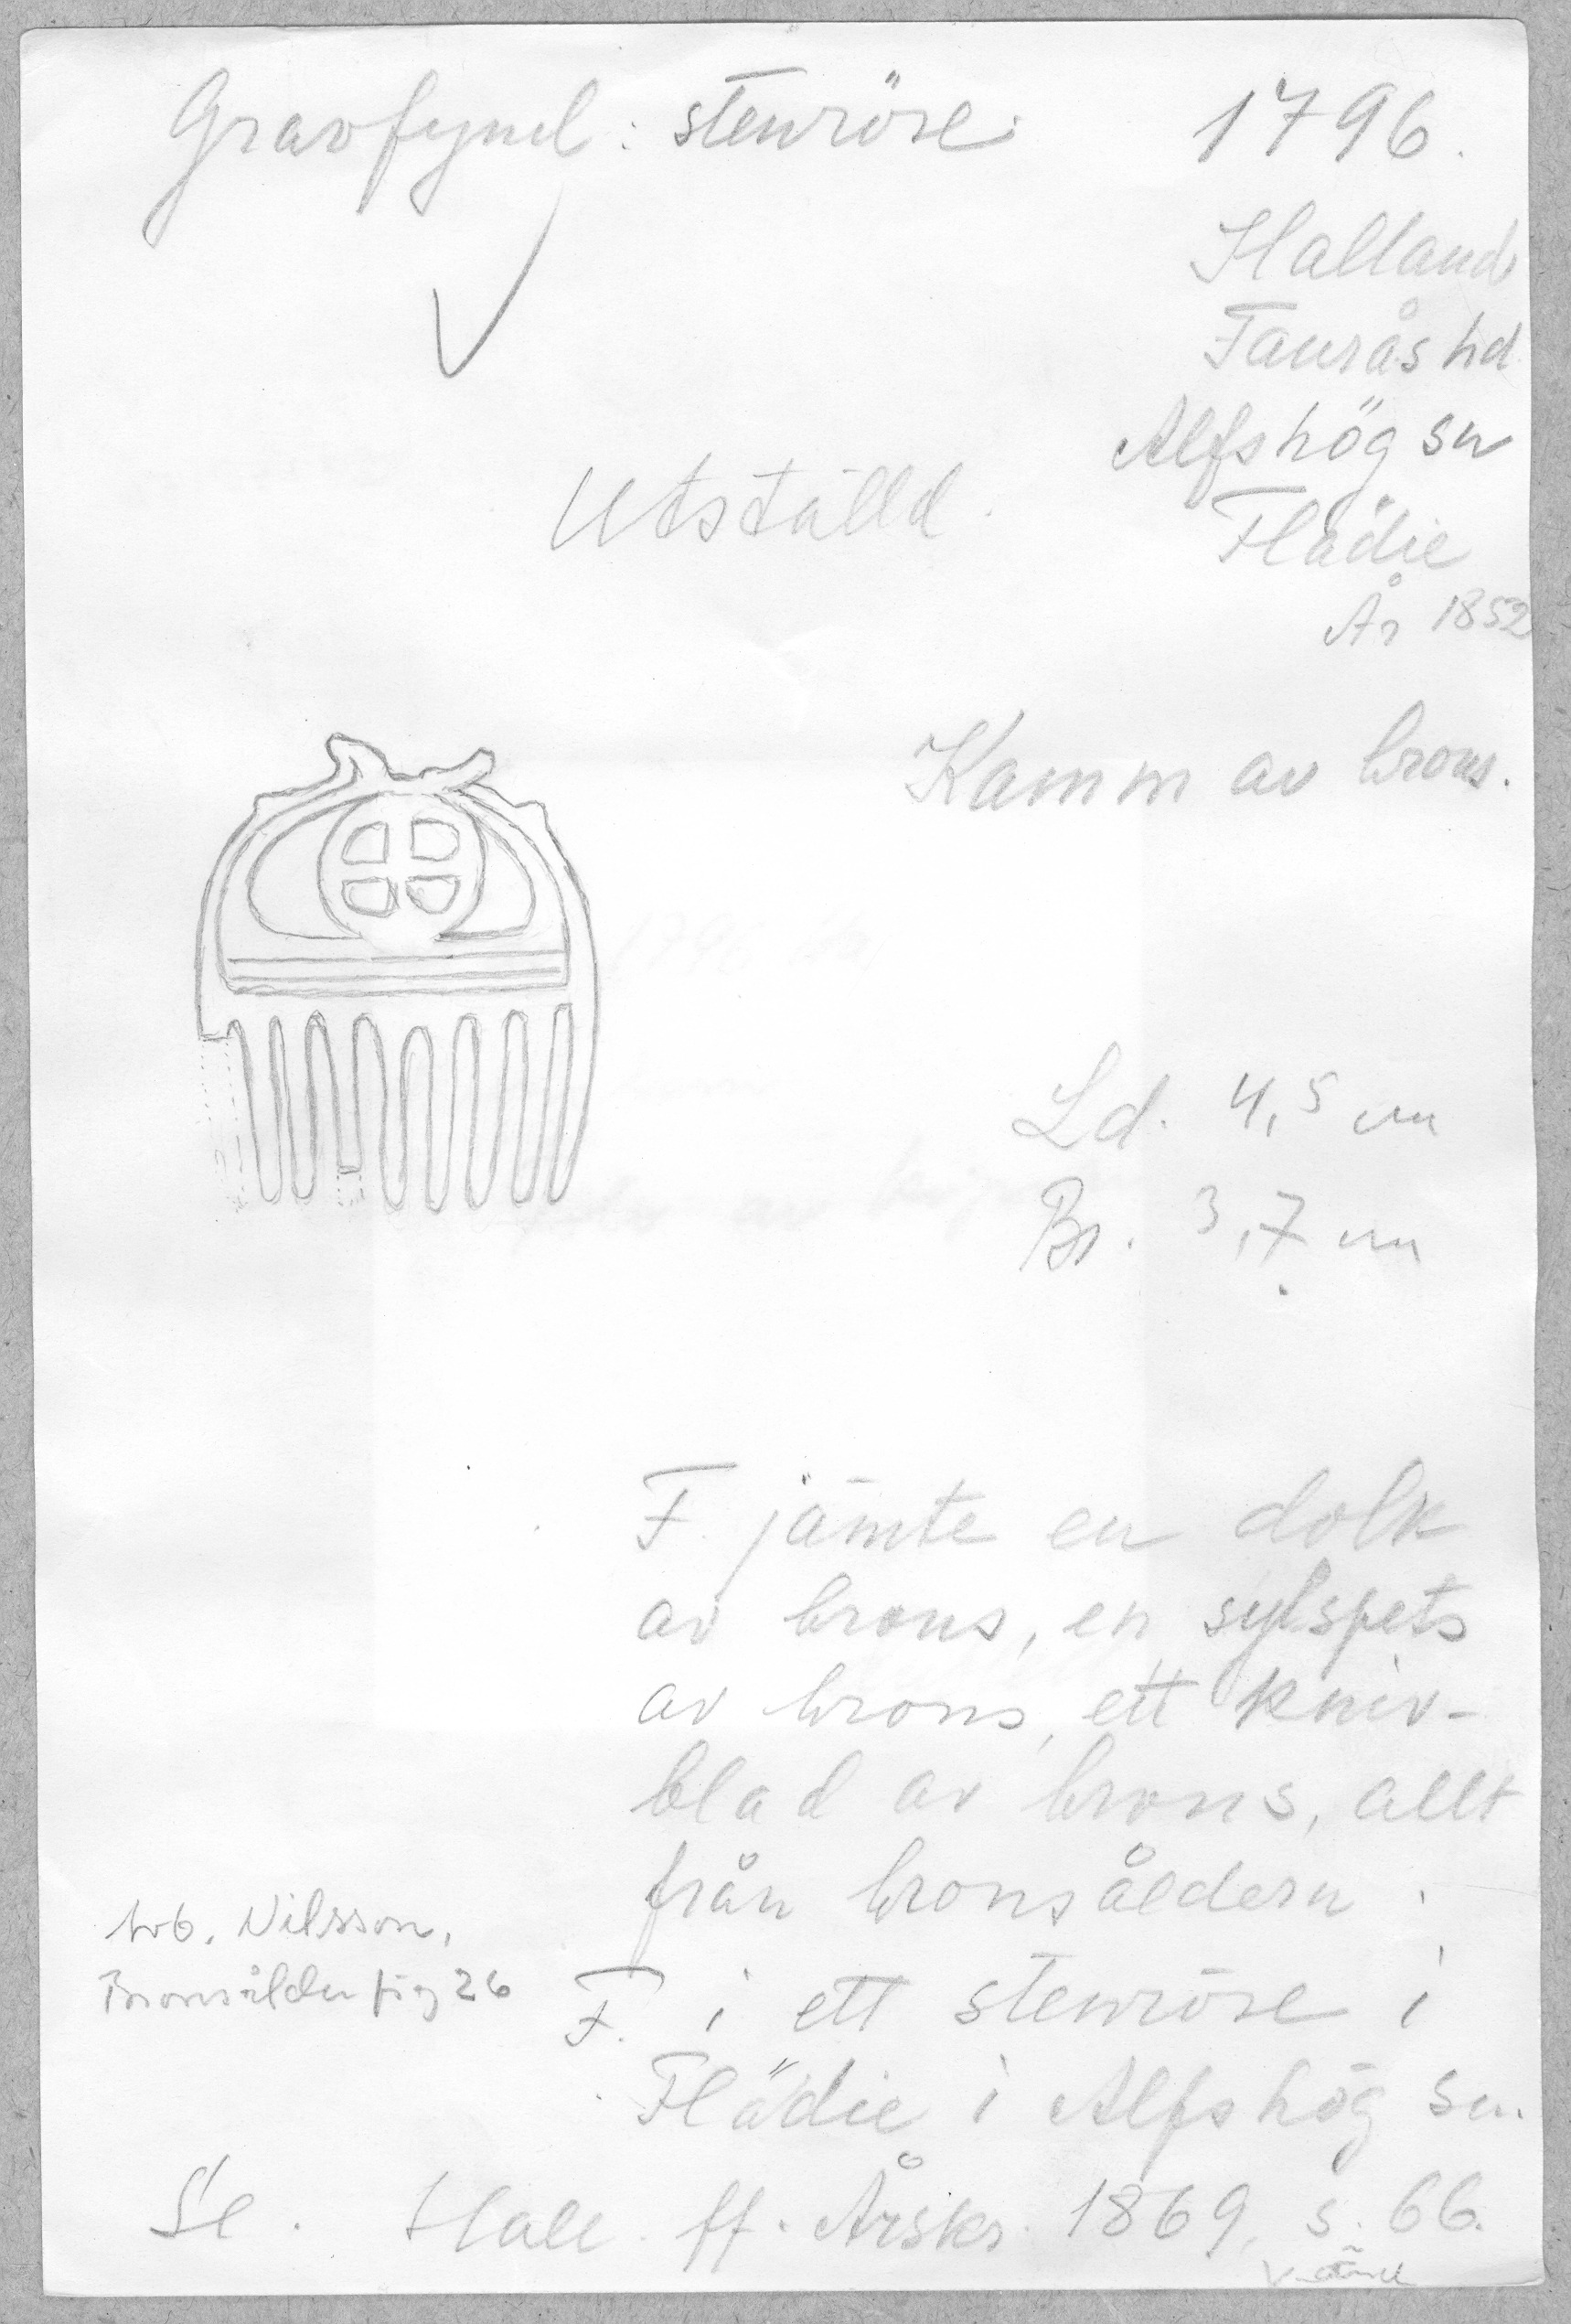 Gravfynd: stenröse. 1796.
Halland
Faurås hd
Alfshög sn
Utställd.
Flädie
År 1852
Kamm av brons.
Ld. 4,5 cm
Br. 3,7 cm
F. jämte en dolk
av brons, en sylspets
av brons, ett kniv-
blad av brons, allt
från bronsåldern.
Nilsson,
Bronsålder fig 26
F. i ett stenröse i
Flädie i Alfshög sn.
Se. Hall. ff. Årskr. 1869, s. 66.